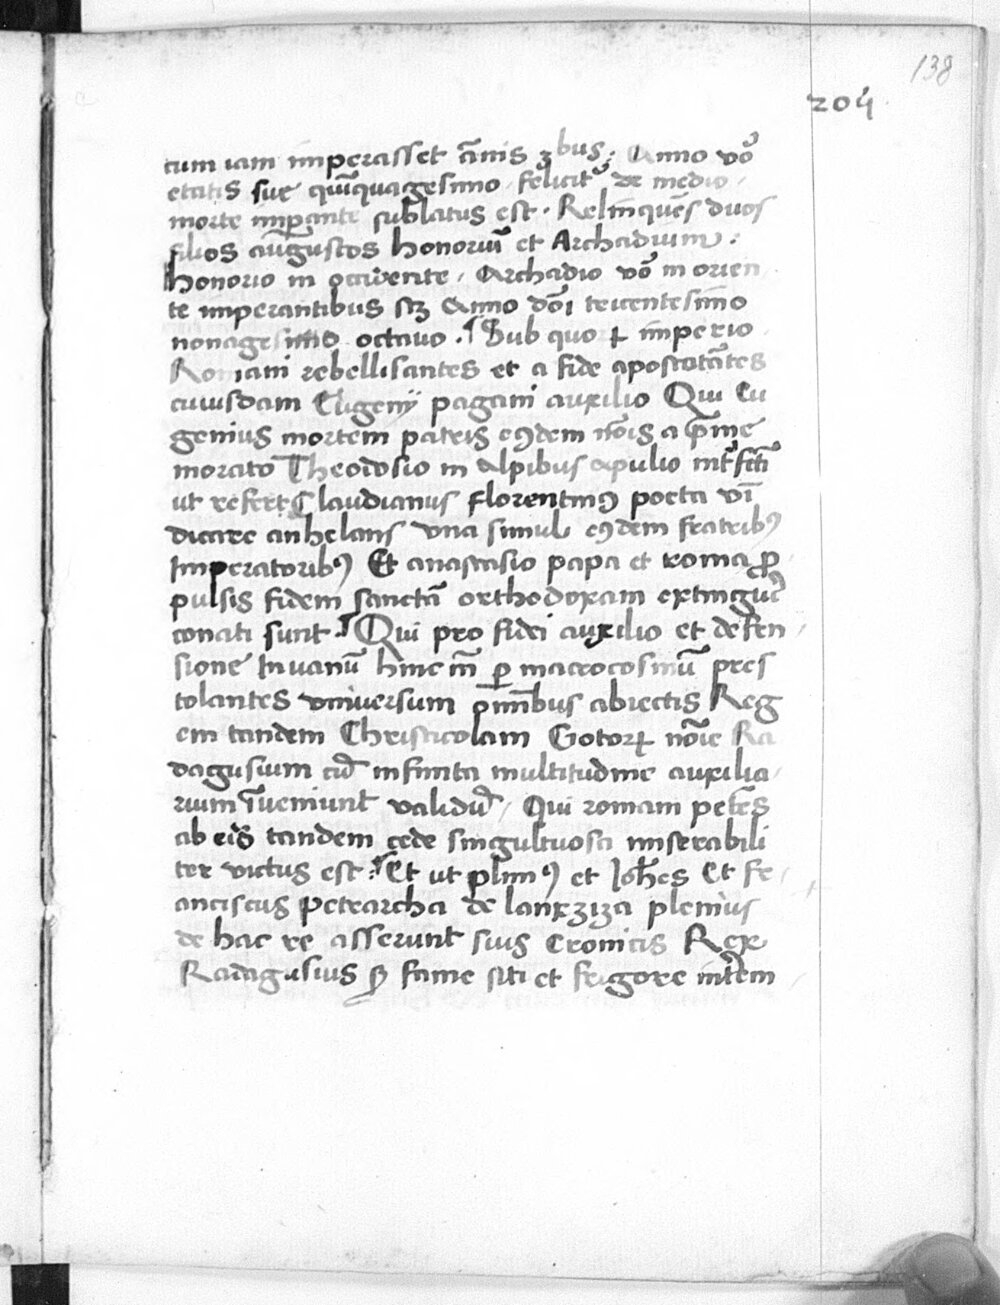 138
204
cum iam imperasset ãnis 3bus: Anno võ
etatis sue quĩquagesimo, felicit᷑ de medio,
morte imꝑante sublatus est. Relinquẽs duos
filios aũgustos honoriũ et Archadium:
honorio in occidente, Archadio võ in orien
te imperantibus sꝫ Anno dõi tricentesimo
nonagesimo octauo. ¶ Sub quoꝝ imperio
Romani rebellisantes et a fide apostatãtes
cuiusdam Eugenij pagani auxilio Qui Eu
genius mortem patris eꝯdem nõis a p̃me
morato Theodosio in Alpibus apulio int᷑fc̃ti
ut refert Claudianus florentinꝯ poeta vĩ
dicare anhelans vna simul eꝯdem fratribꝯ
Imperatoribꝯ Et anastasio papa et roma ꝓ
pulsis fidem sanctã orthodoxam extinguẽ
conati sunt. ¶ Qui pro fidei auxilio et defen,
sione In vanũ hinc in̄ ꝑ macrocosmũ pres
tolantes vniuersum om̃ibus abiectis Reg
em tandem Christicolam Gotoꝝ nõie Ra
dagusium cũ infinita multitudine auxilia,
rium ĩueniunt validũ, Qui romam petẽs
ab eis tandem cede singultuosa miserabili
ter victus est: ¶ Et ut plinꝯ et Joh̃es Et fr,
anciscus petrarcha de lanxziza plenius
de hac re asserunt suis Cronicis Rex
Radagusius ꝓ fame siti et frigore int̃em,